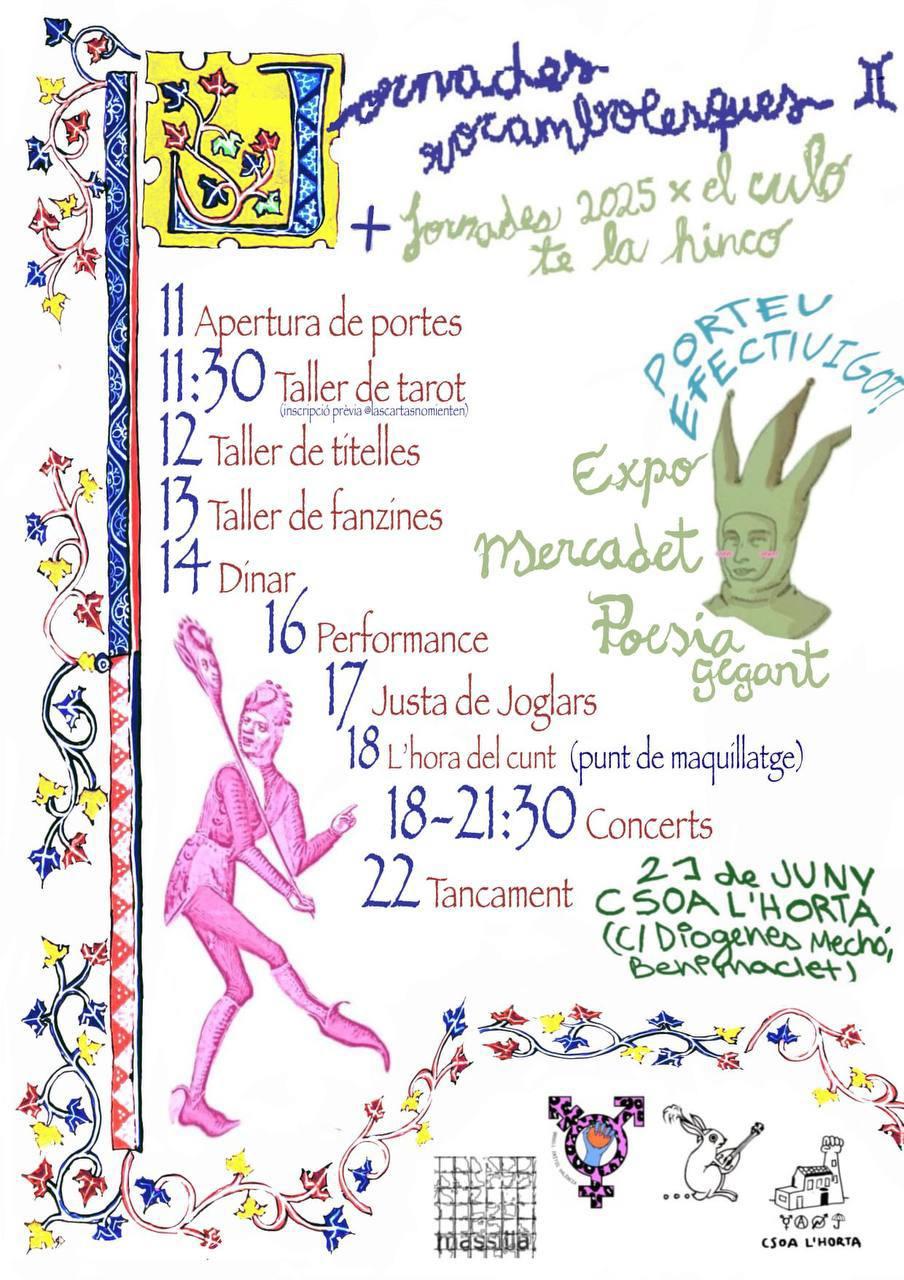 Jornades
rocambolesques II
+ Jornades 2025 x el culo
te la hinco
11 Apertura de portes
11:30 Taller de tarot
(inscripció prèvia @lascartasnomienten)
12 Taller de titelles
13 Taller de fanzines
14 Dinar
16 Performance
17 Justa de Joglars
18 L'hora del cunt (punt de maquillatge)
18-21:30 Concerts
22 Tancament
PORTEU
EFECTIU
Expo
Mercadet
Poesia
gegant
21 de JUNY
CSOA L'HORTA
(C/ Diogenes Mechó,
Benimaclet)
massüa
CSOA L'HORTA